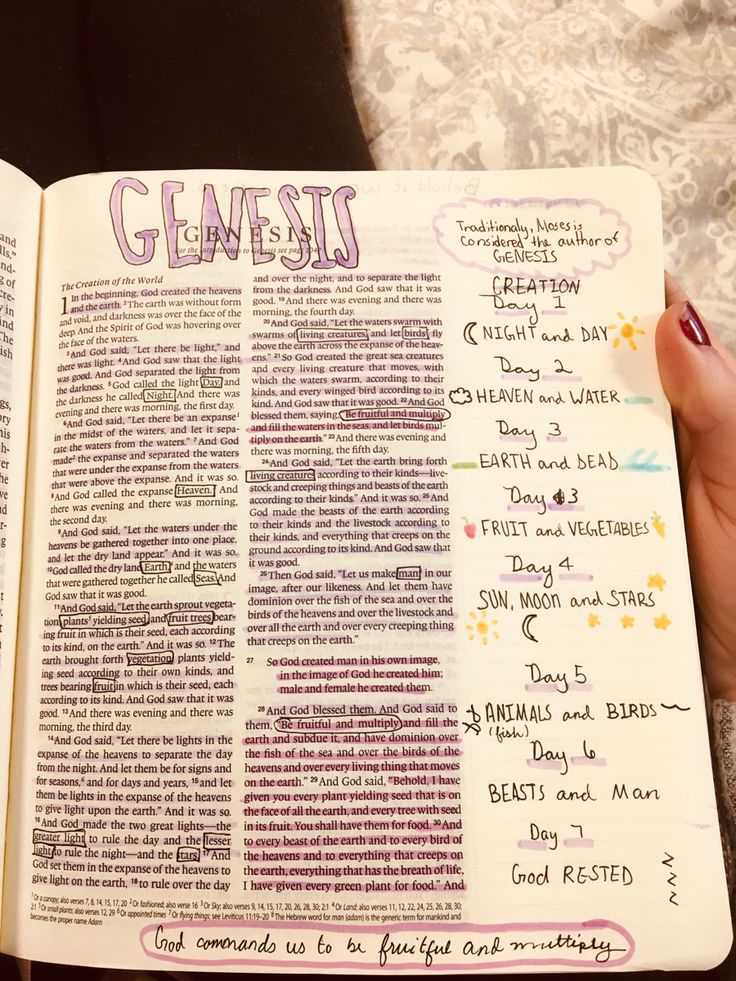 GENESIS
GENESIS
For the introduction to Genesis see page
The Creation of the World
1 In the beginning, God created the heavens
and the earth. 2 The earth was without form
and void, and darkness was over the face of the
deep. And the Spirit of God was hovering over
the face of the waters.
3 And God said, “Let there be light,” and
there was light. 4 And God saw that the light
was good. And God separated the light from
the darkness. 5 God called the light Day, and
the darkness he called Night. And there was
evening and there was morning, the first day.
6 And God said, “Let there be an expanse1
in the midst of the waters, and let it sepa-
rate the waters from the waters.” 7 And God
made2 the expanse and separated the waters
that were under the expanse from the waters
that were above the expanse. And it was so.
8 And God called the expanse Heaven.3 And
there was evening and there was morning,
the second day.
9 And God said, “Let the waters under the
heavens be gathered together into one place,
and let the dry land appear.” And it was so.
10 God called the dry land Earth,4 and the waters
that were gathered together he called Seas. And
God saw that it was good.
11 And God said, “Let the earth sprout vegeta-
tion, plants5 yielding seed, and fruit trees bear-
ing fruit in which is their seed, each according
to its kind, on the earth.” And it was so. 12 The
earth brought forth vegetation, plants yield-
ing seed according to their own kinds, and
trees bearing fruit in which is their seed, each
according to its kind. And God saw that it was
good. 13 And there was evening and there was
morning, the third day.
14 And God said, “Let there be lights in the
expanse of the heavens to separate the day
from the night. And let them be for signs and
for seasons,6 and for days and years, 15 and let
them be lights in the expanse of the heavens
to give light upon the earth.” And it was so.
16 And God made the two great lights—the
greater light to rule the day and the lesser
light to rule the night—and the stars. 17 And
God set them in the expanse of the heavens to
give light on the earth, 18 to rule over the day
and over the night, and to separate the light
from the darkness. And God saw that it was
good. 19 And there was evening and there was
morning, the fourth day.
20 And God said, “Let the waters swarm with
swarms of living creatures, and let birds7 fly
above the earth across the expanse of the heav-
ens.” 21 So God created the great sea creatures
and every living creature that moves, with
which the waters swarm, according to their
kinds, and every winged bird according to its
kind. And God saw that it was good. 22 And God
blessed them, saying, “Be fruitful and multiply
and fill the waters in the seas, and let birds mul-
tiply on the earth.” 23 And there was evening and
there was morning, the fifth day.
24 And God said, “Let the earth bring forth
living creatures according to their kinds—live-
stock and creeping things and beasts of the earth
according to their kinds.” And it was so. 25 And
God made the beasts of the earth according
to their kinds and the livestock according to
their kinds, and everything that creeps on the
ground according to its kind. And God saw that
it was good.
26 Then God said, “Let us make man8 in our
image, after our likeness. And let them have
dominion over the fish of the sea and over the
birds of the heavens and over the livestock and
over all the earth and over every creeping thing
that creeps on the earth.”
27 So God created man in his own image,
in the image of God he created him;
male and female he created them.
28 And God blessed them. And God said to
them, “Be fruitful and multiply and fill the
earth and subdue it, and have dominion over
the fish of the sea and over the birds of the
heavens and over every living thing that moves
on the earth.” 29 And God said, “Behold, I have
given you every plant yielding seed that is on
the face of all the earth, and every tree with seed
in its fruit. You shall have them for food. 30 And
to every beast of the earth and to every bird of
the heavens and to everything that creeps on
the earth, everything that has the breath of life,
I have given every green plant for food.” And
1 Or a canopy; also verses 7, 8, 14, 15, 17, 20 2 Or fashioned; also verse 16 3 Or Sky; also verses 9, 14, 15, 17, 20, 26, 28, 30; 2:1 4 Or Land; also verses 11, 12, 22, 24, 25, 26, 28, 30;
2:1 5 Or small plants; also verses 12, 29 6 Or appointed times 7 Or flying things; see Leviticus 11:19–20 8 The Hebrew word for man (adam) is the generic term for mankind and
becomes the proper name Adam
Traditionaly, Moses is
considered the author of
GENESIS
CREATION
Day 1
NIGHT and DAY
Day 2
HEAVEN and WATER
Day 3
EARTH and DEAD
Day 3
FRUIT and VEGETABLES
Day 4
SUN, MOON and STARS
Day 5
ANIMALS and BIRDS
(fish)
Day 6
BEASTS and Man
Day 7
God RESTED
God commands us to be fruitful and multiply